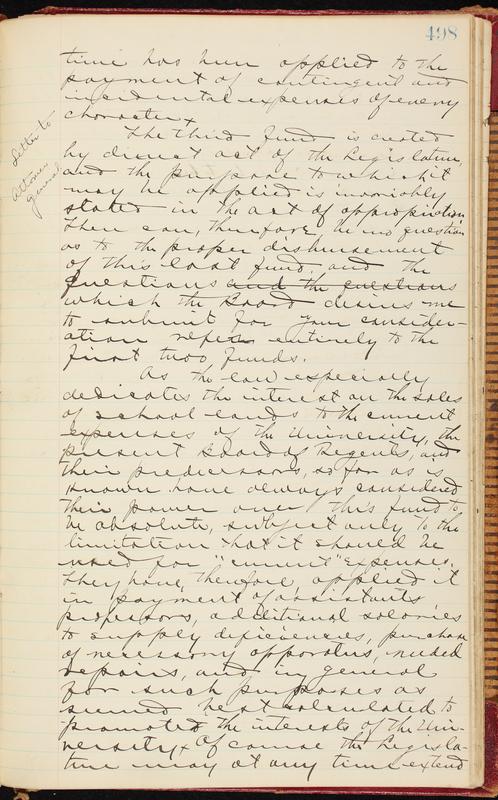 498
time has been applied to the
payment of contingent and
incidental expenses of every
character.
Letter to
Attorney
general
The third fund is created
by direct act of the Legislature,
and the purpose to which it
may be applied is invariably
stated in the act of appropriation.
There can, therefore, be no question
as to the proper disbursement
of this last fund, and the
questions and the questions
which the Board desires me
to submit for your consider-
ation refer entirely to the
first two funds.
As the law especially
dedicates the interest on the sales
of school lands to the current
expenses of the University, the
present Board of Regents, and
their predecessors, so far as is
known have always considered
their power over this fund to
be absolute, subject only to the
limitation that it should be
used for "current" expenses.
They have, therefore, applied it
in payment of assistants
professors, additional salaries
to supply deficiencies, purchase
of necessary apparatus, needed
repairs, and in general
for such purposes as
seemed best calculated to
promoted the interests of the Uni-
versity. Of course the Legisla-
ture may at any time extend